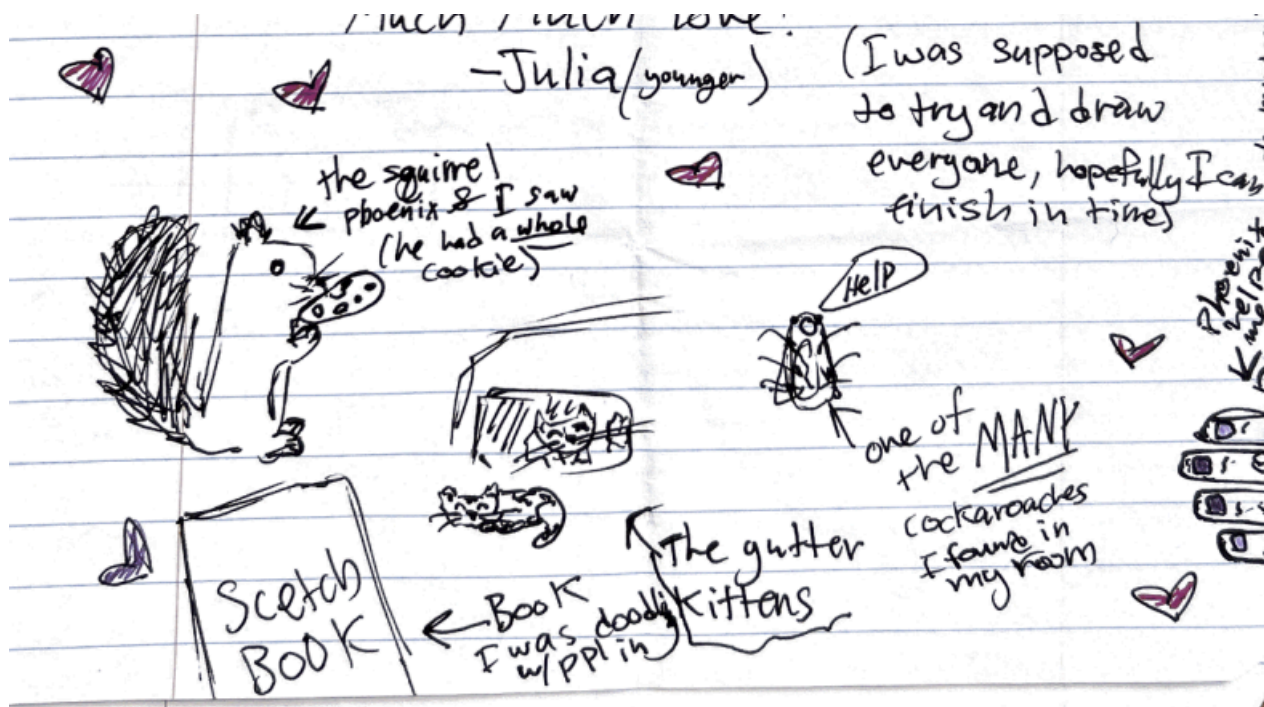 Much Much love!
-Julia (younger)
(I was supposed
to try and draw
everyone, hopefully I can
finish in time)
the squirrel
phoenix & I saw
(he had a whole
cookie)
Help
one of
the MANY
cockaroaches
I found in
my room
The gutter
Kittens
Scetch
BOOK
Book
I was doodlig
w/ ppl in
Phoenix
helped
me